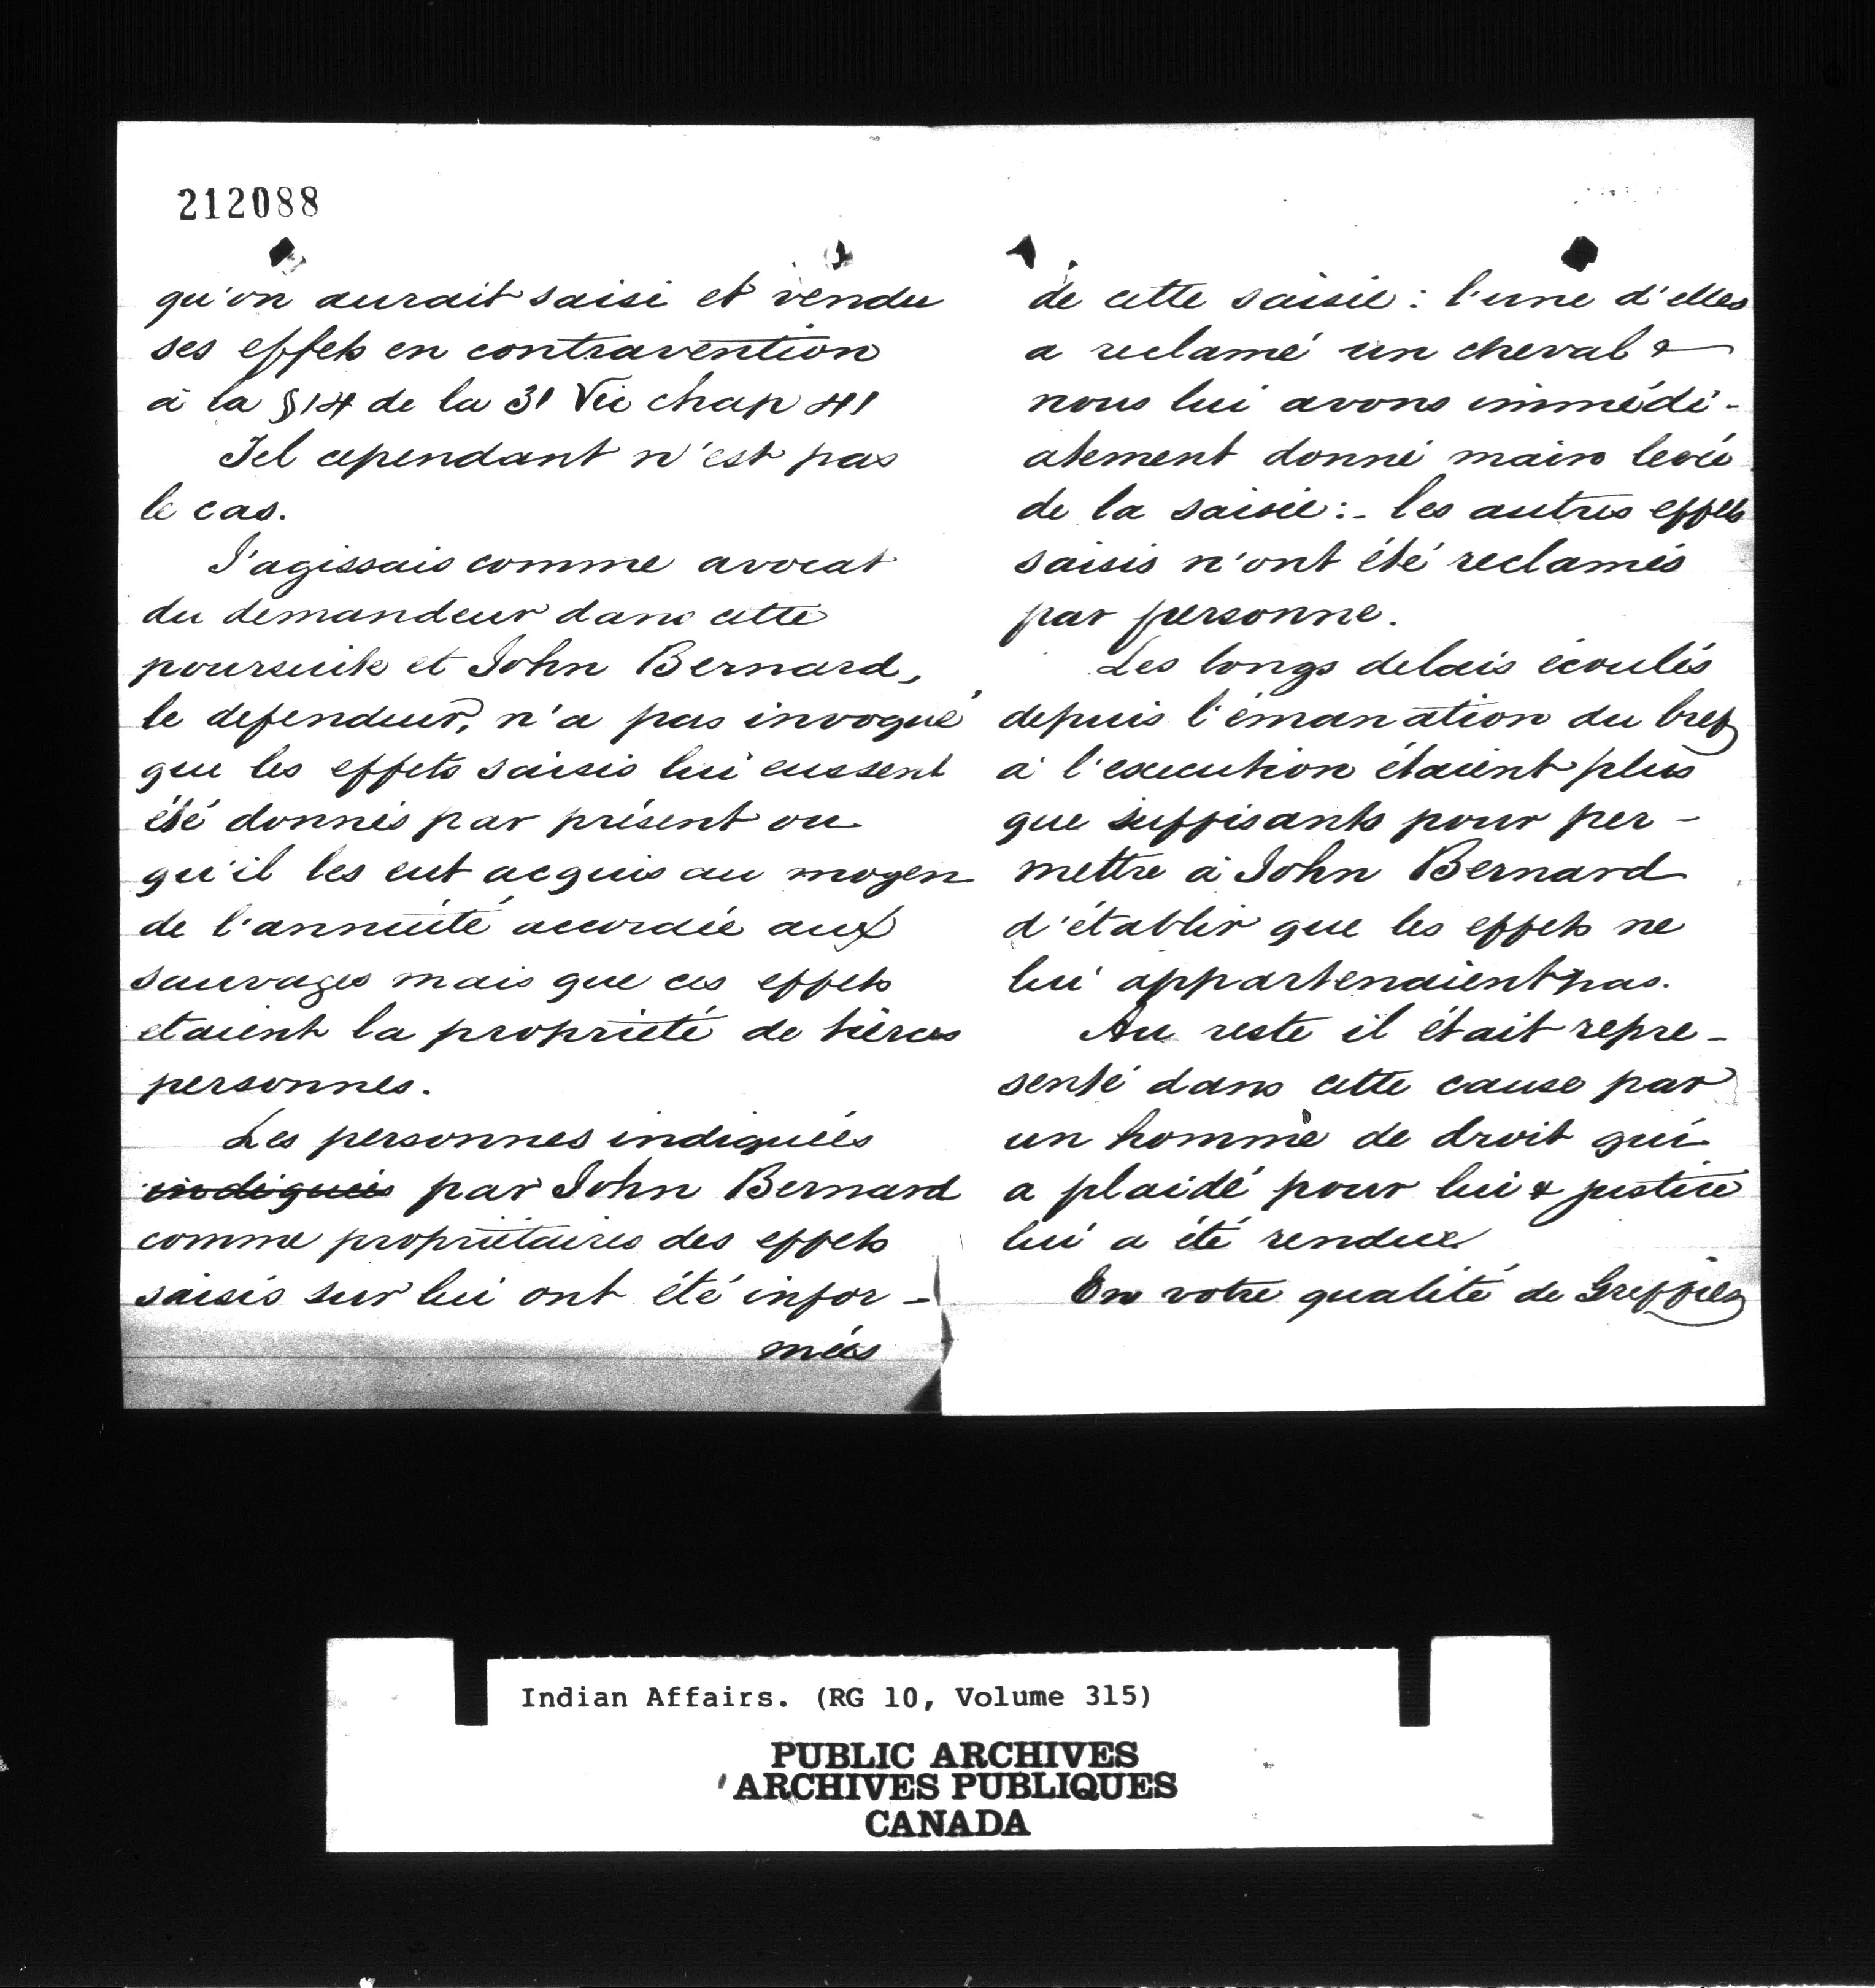 212088
qu'on aurait saisi et vendu
ses effets en contravention
à la §14 de la 31 Vic chap 41
Tel cependant n'est pas
le cas.
J'agissais comme avocat
du demandeur dans cette
poursuite et John Bernard,
le defendeur, n'a pas invoqué
que les effets saisis lui eussent
été donnés par présent ou
qu'il les eut acquis au moyen
de l'annuité accordée aux
sauvages mais que ces effets
etaient la propriété de tierces
personnes.
Les personnes indiquées
indiquées par John Bernard
comme propriétaires des effets
saisis sur lui ont été infor-
mées
de cette saisie : l'une d'elles
a reclamé un cheval &
nous lui avons immédi-
atement donné main levée
de la saisie :- les autres effets
saisis n'ont été reclamés
par personne.
Les longs delais écoulés
depuis l'émanation du bref
à l'execution étaient plus
que suffisants pour per-
mettre à John Bernard
d'établir que les effets ne
lui appartenaient pas.
Au reste il était repre-
senté dans cette cause par
un homme de droit qui
a plaidé pour lui & justice
lui a été rendue.
En votre qualité de Greffier
Indian Affairs. (RG 10, Volume 315)
PUBLIC ARCHIVES
ARCHIVES PUBLIQUES
CANADA